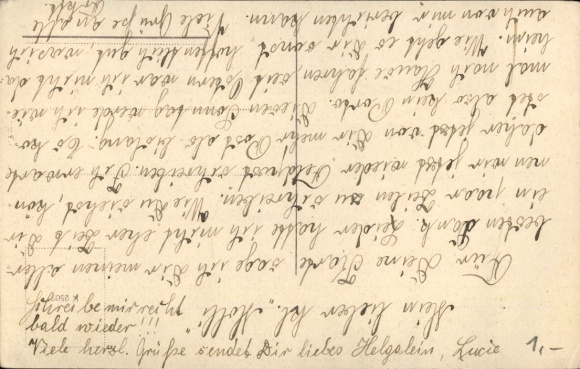 Mein lieber kl. „Molli".
Für Deine Karte sage ich Dir meinen aller-
besten Dank. Leider hatte ich nicht eher Zeit Dir
ein paar Zeilen zu schreiben. Wie Du siehst kön-
nen wir jetzt wieder Feldpost schreiben. Ich erwarte
daher jetzt von Dir mehr Post als bislang. Es ko-
stet also kein Porto. Diesen Sonntag werde ich wie
mal nach Hause fahren, seit Ostern war ich nicht da-
heim. Wie geht es Dir sonst, hoffentlich gut, was ich
auch von mir berichten kann.
Viele Grüße an alle
Schreibe mir recht
bald wieder!!!
Viele herzl. Grüße sendet Dir liebes Helgalein, Lucie
1,-